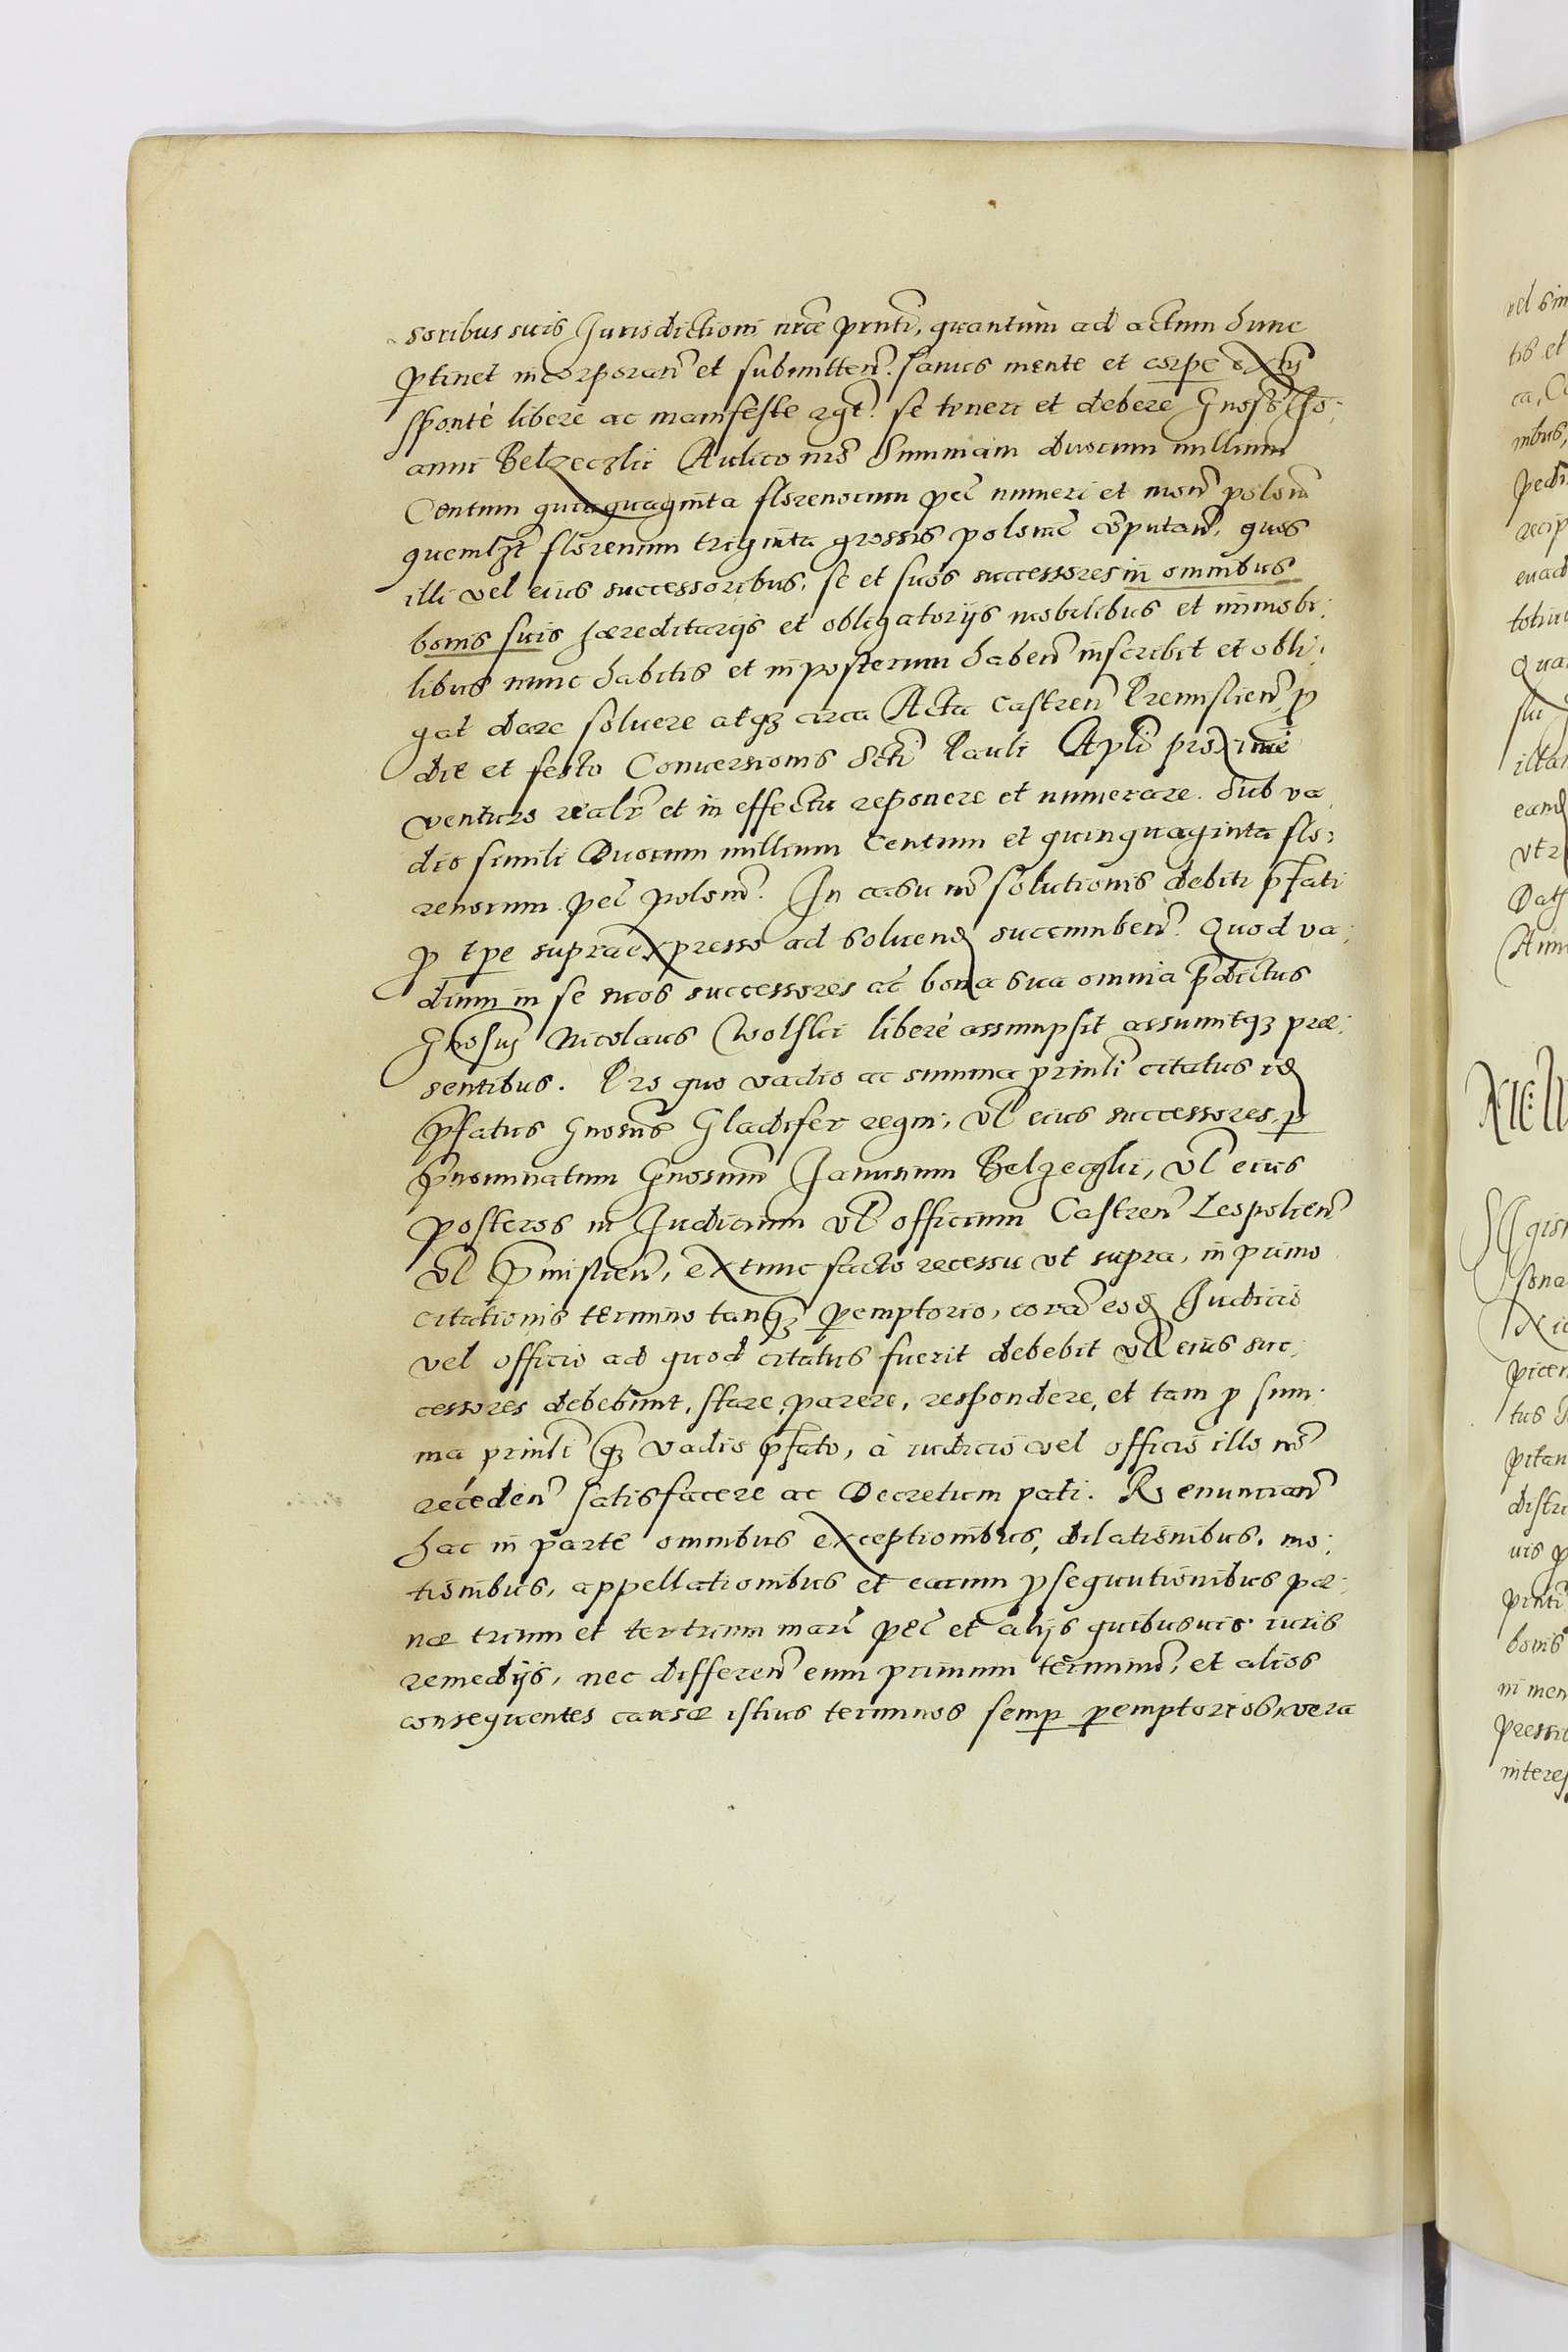 soribus suis Jurisdictioni nr̃æ prnti, quantùm ad actum hunc
ꝑtinet incorporañ et submitteñ. sanus mente et corpe exñs
spontè liberè ac manifeste rgt. se teneri et debere Gnoso Jo:
anni Belzeczki Aulico nr̃o Summam duorum millium
Centum quinquaginta florenorum pec̃ numeri et moñ poloñ
quemlꝫt florenum triginta grossis poloñc coputañ, quos
illi vel eius successoribus, se et suos successores in omnibus
bonis suis hæreditarijs et obligatorijs mobilibus et immobi:
libus nunc habitis et in posterum habeñ inscribit et obli:
gat dare soluere atqꝫ circa Acta Castreñ Premislieñ, ꝓ
die et festo Conuersionis Scti Pauli Apli proximè
venturo realr̃ et in effectu reponere et numerare. Sub va
dio simili Duorum millium Centum et quinquaginta flo:
renorum pec̃ poloñ. In casu nõ solutionis debiti p̃fati
ꝓ tpe supraexpresso ad soluend succumbeñ. Quod va:
dium in se suos successores ac bona sua omnia p̃dictus
Gnosus Nicolaus Wolski liberè assumpsit assumitqꝫ præ:
sentibus. Pro quo vadio ac summa prinli citatus id
p̃fatus Gnosus Gladifer regni, vl eius successores, ꝑ
p̃nominatum Gnosum Janusium Belzeczki, vl eius
posteros in Judicium vl officium Castreñ Leopolieñ
vl P̃mislieñ, extunc facto recessu vt supra, in primo
citationis termino tanqꝫ ꝑemptorio, corã eod Judicio
vel officio ad quod citatus fuerit debebit vl eius suc:
cessores debebunt, stare, parere, respondere, et tam ꝓ sum:
ma prinli qꝫ vadio p̃fato, à iudicio vel officio illo nõ
recedeñ satisfacere ac Decretum pati. Renunciañ
hac in parte omnibus exceptionibus, dilationibus, mo:
tionibus, appellationibus et earum ꝓsequutionibus pœ:
næ trium et tertrium marc̃ pec̃ et alijs quibusuis iuris
remedijs, nec differeñ eum primum terminũ, et alios
consequentes causæ istius terminos semꝑ ꝑemptorios, vera